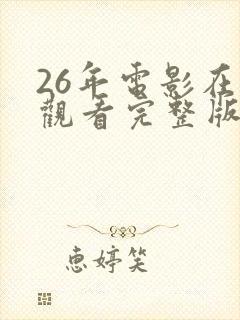 26年電影在
觀看完整版
惠婷笑